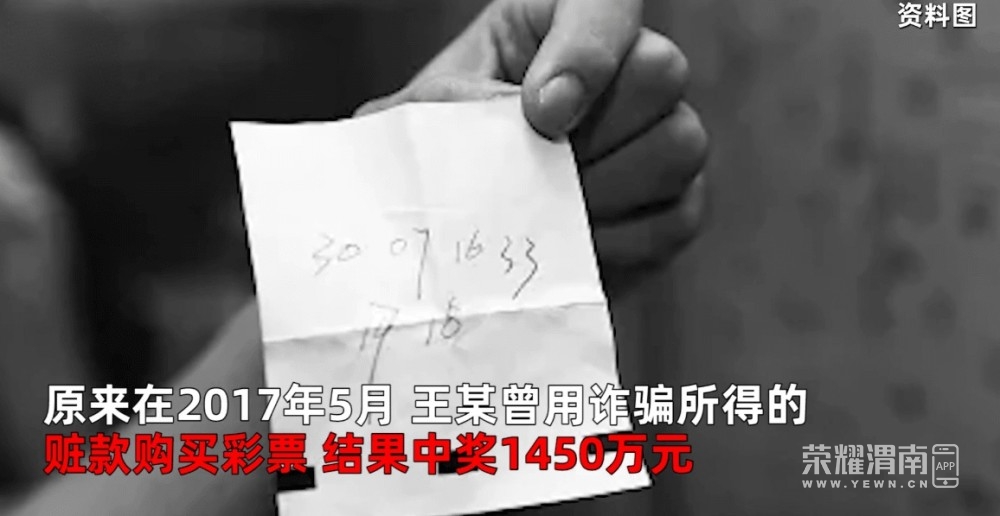 资料图
30 07 16 33
16
原来在2017年5月 王某曾用诈骗所得的
赃款购买彩票 结果中奖1450万元
荣耀渭南 APP
WWW.YEWN.CN